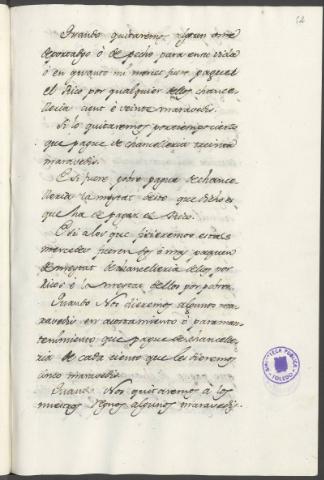 52
Quando quitaremos algun ome
de portadgo ó de pecho para en su vida
ó en quanto mi merced fuere pague el
el Rico por qualquier dellos chance-
lleria cient é veinte maravedis.
Si lo quitaremos por tiempo cierto
que pague de chancelleria treinta
maravedis.
E si fuere pobre pague de chance-
lleria la meytat desto que dicho es
que ha de pagar el Rico.
E si a los que ficieremos estas
mercedes fueren dos ó mas paguen
de meytat de chancelleria dellos por
Ricos é la meytad dellos por pobres.
Quando Nos dieremos algunos ma-
ravedis en acostamiento ó para man-
tenimiento que pague de chancelle-
ria de cada ciento que les dieremos
cinco maravedis.
Quando Nos quitaremos á los
nuestros Regnos algunos maravedis
BIBLIOTECA PUBLICA
TOLEDO